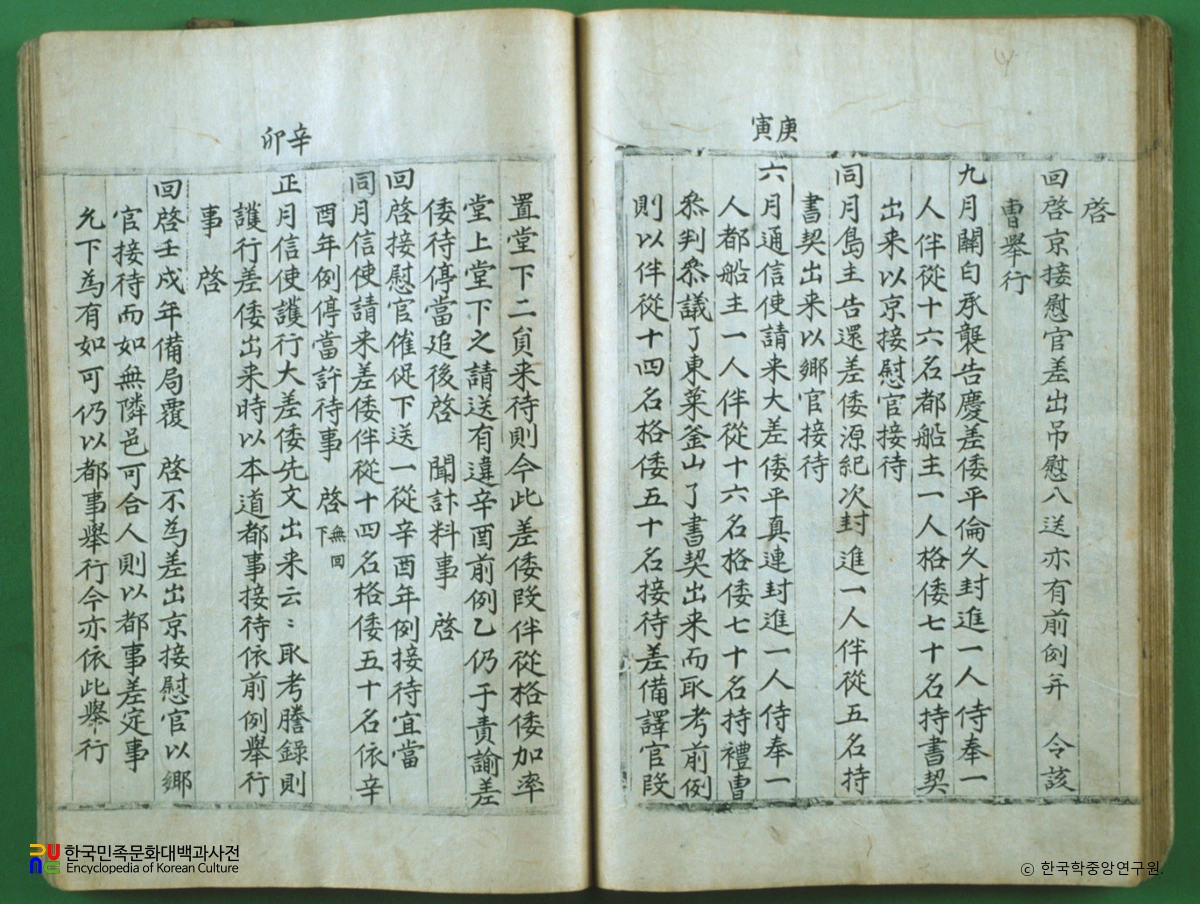 庚寅
啓
回啓京接慰官差出吊慰入送亦有前例幷 令該
曹擧行
九月關白承襲告慶差倭平倫久封進一人侍奉一
人伴從十六名都船主一人格倭七十名持書契
出来以京接慰官接待
同月島主告還差倭源紀次封進一人伴從五名持
書契出来以鄕官接待
六月通信使請来大差倭平真連封進一人侍奉一
人都船主一人伴從十六名格倭七十名持禮曹
叅判叅議了東萊釜山了書契出来而取考前例
則以伴從十四名格倭五十名接待差備譯官段
辛卯
置堂下二負来待則今此差倭段伴從格倭加率
堂上堂下之請送有違辛酉前例乙仍于責諭差
倭待停當追後啓 聞計料事 啓
回啓接慰官催促下送一從辛酉年例接待宜當
同月信使請来差倭伴從十四名格倭五十名依辛
酉年例停當許待事 啓 無回下
正月信使護行大差倭先文出来云〻取考謄錄則
護行差倭出来時以本道都事接待依前例擧行
事 啓
回啓壬戌年備局覆 啓不爲差出京接慰官以鄕
官接待而如無隣邑可合人則以都事差定事
允下爲有如可仍以都事擧行今亦依此擧行
한국민족문화대백과사전
Encyclopedia of Korean Culture
© 한국학중앙연구원.